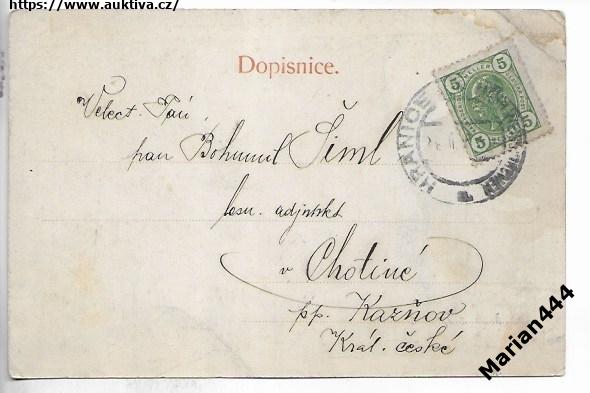 https://www.auktiva.cz/
Dopisnice.
5 HELLER 5
5 5
HRANICE
Velect. Pán
pan Bohumil Šiml
lesn. adjunkt
v Chotině
pp. Kaznov
Král. české
Marian444